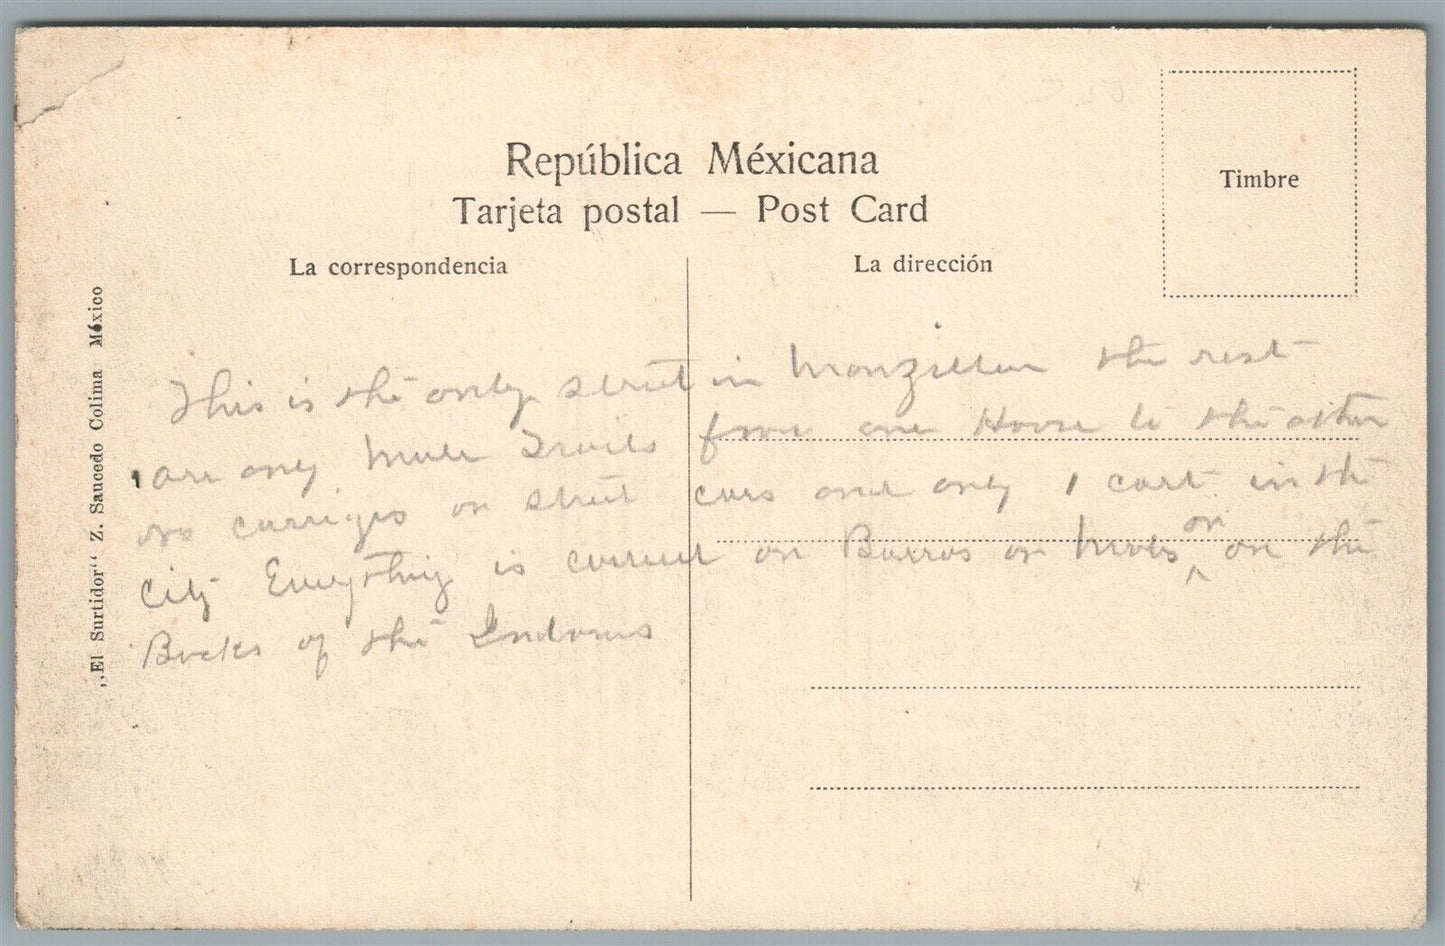 República Méxicana
Tarjeta postal — Post Card
Timbre
La correspondencia
La dirección
„El Surtidor“ Z. Saucedo Colima México
This is the only street in Manzillan the rest
are only Mule Trails from one House to the other
no carriges or street cars and only 1 cart in the
City Everything is carried on Burros or Mules on on the
Backs of the Indians